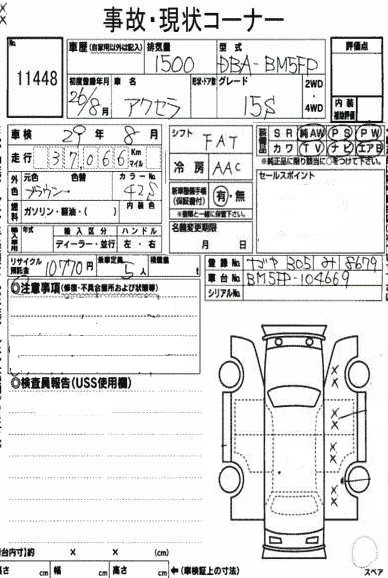 事故・現状コーナー
No. 11448
車歴 (自家用以外は記入) 排気量 1500 型式 DBA-BM5FP
評価点
初度登録年月 26/8月 車名 アクセラ 形状・ドア数 グレード 15S 2WD・4WD
内装 補助評価
車検 29年8月
シフト FAT
装備品 SR 純AW PS PW
カワ TV ナビ エアB
※純正品に限り該当に○をつけて下さい。
走行 37066 Km マイル
冷房 AAC
セールスポイント
外色 元色 ブラウン 色替 カラーNo. 42S
新車整備手帳(保証書付) 有・無
※書類と一緒に保管下さい。
燃料 ガソリン・軽油・( ) 内装色
名義変更期限 月 日
輸入車用 年式 輸入区分 ハンドル
ディーラー・並行 左・右
リサイクル預託金 10770円 乗車定員 5人 積載量 t
登録No. 305 み 8679
車台No. BM5FP-104669
シリアルNo.
◎注意事項(修復・不具合箇所および状態等)
◎検査員報告(USS使用欄)
XX
XX
XX
XX
XX
荷台内寸)約 × × (cm)
長さ cm 幅 cm 高さ cm ←(車検証上の寸法)
スペア